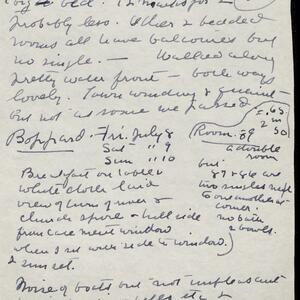 bed. 12 marks for 2
probably less. Other 2 bedded
rooms all have balconies but
no single. — Walked along
pretty water front — both ways
lovely. Town winding & quaint
but not as some we passed
Boppard. Fri. July 8
Sat " 9
Sun " 10
.65
2
Room. 86
adorable
room
but
87 & 86 are
two singles next
to one another at
corner.
no bath
2 bowls.
Breakfast on table
white cloth laid
view of turn of river &
church spire & hillside
from casement window
when I sit next side to window)
2 sunset.
Noise of boats but not unpleasant